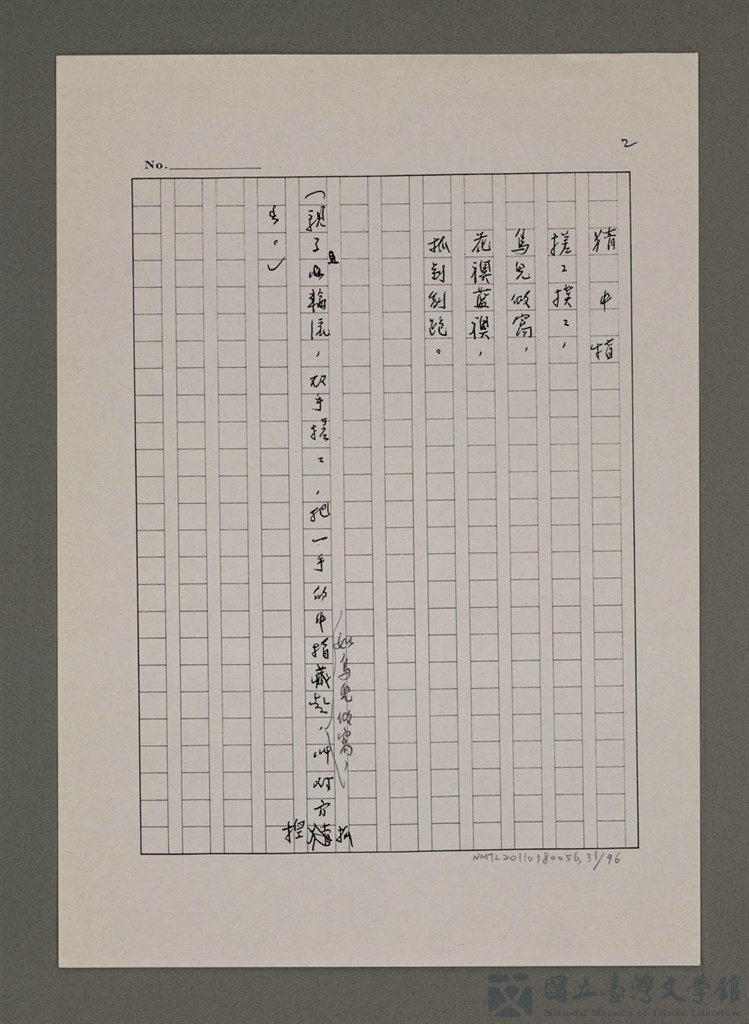 2
No.
猜中指
搓〻揉〻，
鳥兒做窩，
花襖藍襖，
抓到別跑。
（親子輪流，双手搓〻，把一手的中指藏起，叫对方抓
如鳥兒做窩，
出。
NMTL20110380056, 31/96
國立臺灣文學館
National Museum of Taiwan Literature